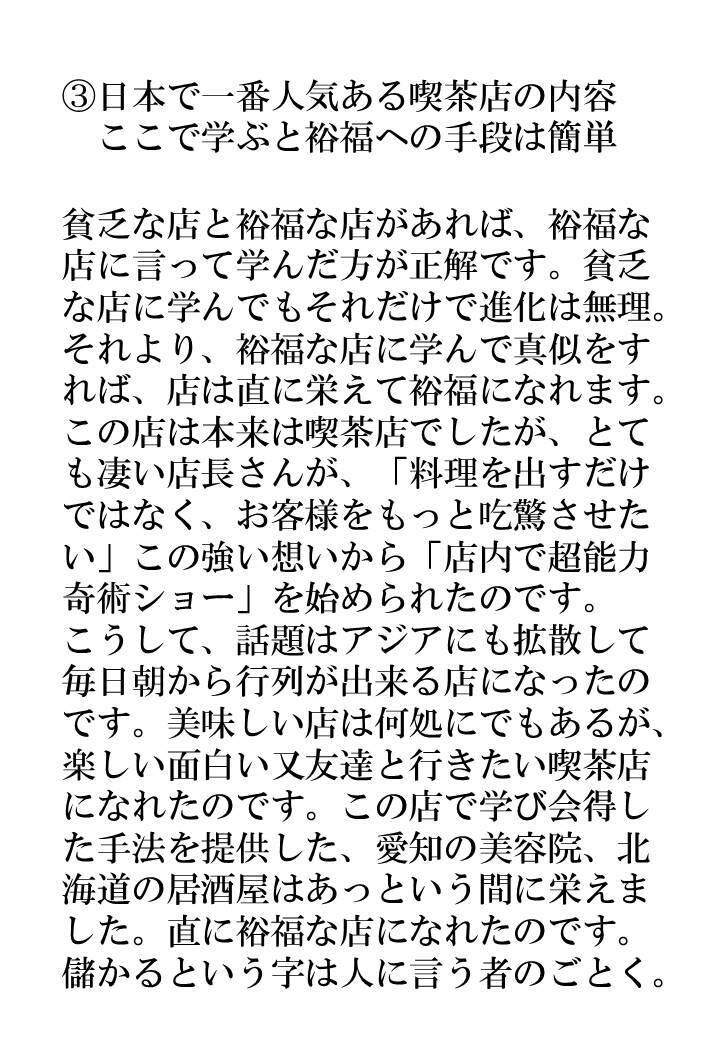 ③日本で一番人気ある喫茶店の内容
ここで学ぶと裕福への手段は簡単
貧乏な店と裕福な店があれば、裕福な
店に言って学んだ方が正解です。貧乏
な店に学んでもそれだけで進化は無理。
それより、裕福な店に学んで真似をす
れば、店は直に栄えて裕福になれます。
この店は本来は喫茶店でしたが、とて
も凄い店長さんが、「料理を出すだけ
ではなく、お客様をもっと吃驚させた
い」この強い想いから「店内で超能力
奇術ショー」を始められたのです。
こうして、話題はアジアにも拡散して
毎日朝から行列が出来る店になったの
です。美味しい店は何処にでもあるが、
楽しい面白い又友達と行きたい喫茶店
になれたのです。この店で学び会得し
た手法を提供した、愛知の美容院、北
海道の居酒屋はあっという間に栄えま
した。直に裕福な店になれたのです。
儲かるという字は人に言う者のごとく。